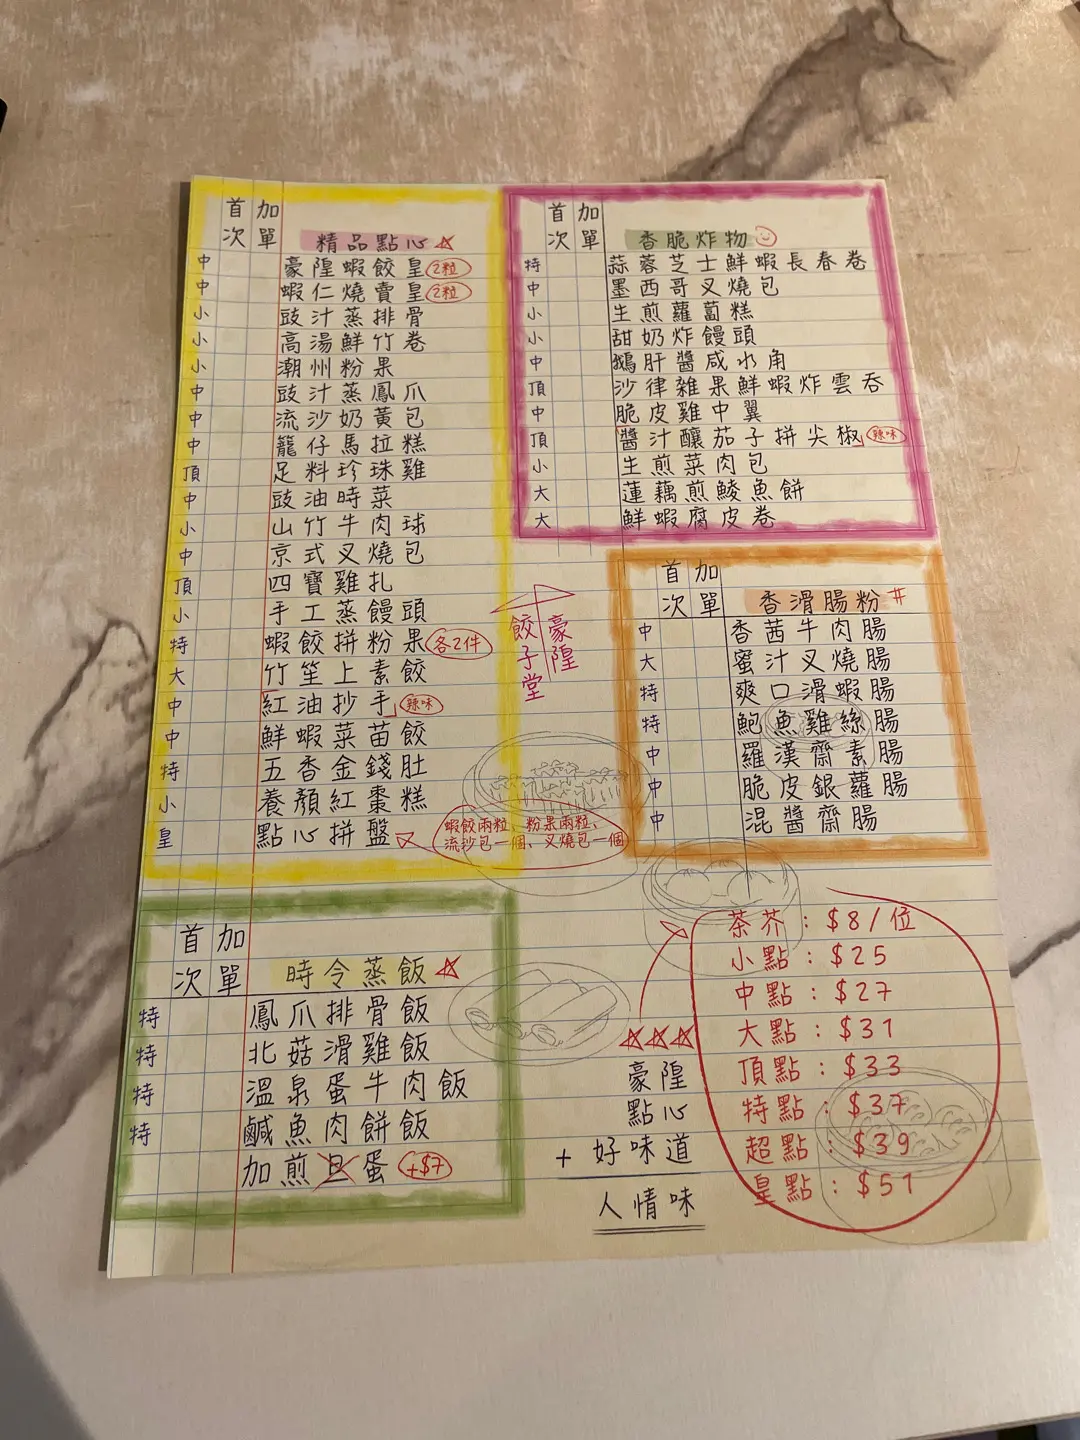 首 加
次 單 精品點心
中 豪隍蝦餃皇 2粒
中 蝦仁燒賣皇 2粒
小 豉汁蒸排骨
小 高湯鮮竹卷
小 潮州粉果
中 豉汁蒸鳳爪
中 流沙奶黃包
中 籠仔馬拉糕
頂 足料珍珠雞
中 豉油時菜
小 山竹牛肉球
中 京式叉燒包
頂 四寶雞扎
小 手工蒸饅頭
特 蝦餃拼粉果 各2件
大 竹笙上素餃
中 紅油抄手 辣味
中 鮮蝦菜苗餃
特 五香金錢肚
小 養顏紅棗糕
皇 點心拼盤
蝦餃兩粒、粉果兩粒、
流沙包一個、叉燒包一個
首 加
次 單 香脆炸物
特 蒜蓉芝士鮮蝦長春卷
中 墨西哥叉燒包
小 生煎蘿蔔糕
小 甜奶炸饅頭
中 鵝肝醬咸水角
頂 沙律雜果鮮蝦炸雲吞
中 脆皮雞中翼
頂 醬汁釀茄子拼尖椒 辣味
小 生煎菜肉包
大 蓮藕煎鯪魚餅
大 鮮蝦腐皮卷
豪隍
餃子堂
首 加
次 單 香滑腸粉
中 香茜牛肉腸
大 蜜汁叉燒腸
特 爽口滑蝦腸
特 鮑魚雞絲腸
中 羅漢齋素腸
中 脆皮銀蘿腸
中 混醬齋腸
首 加
次 單 時令蒸飯
特 鳳爪排骨飯
特 北菇滑雞飯
特 溫泉蛋牛肉飯
特 鹹魚肉餅飯
加煎蛋 +$7
豪隍
點心
+ 好味道
人情味
茶芥：$8/位
小點：$25
中點：$27
大點：$31
頂點：$33
特點：$37
超點：$39
皇點：$51